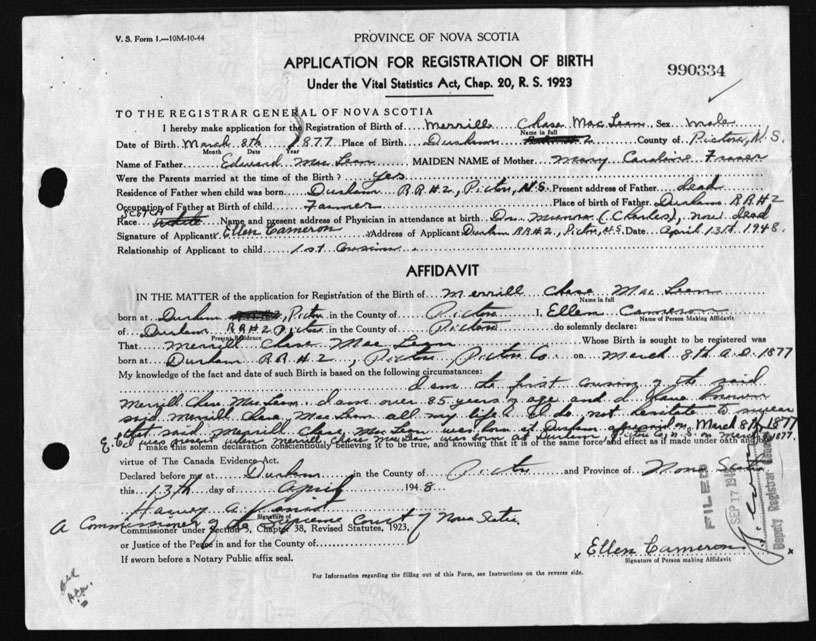 V. S. Form 1.—10M-10-44
PROVINCE OF NOVA SCOTIA
APPLICATION FOR REGISTRATION OF BIRTH
Under the Vital Statistics Act, Chap. 20, R. S. 1923
990334
TO THE REGISTRAR GENERAL OF NOVA SCOTIA
I hereby make application for the Registration of Birth of Merrill Chase MacLean Sex Male
Name in full
Date of Birth March 8th 1877 Place of Birth Durham County of Pictou, N.S.
Month Date Year
Name of Father Edward MacLean MAIDEN NAME of Mother Mary Caroline Fraser
Were the Parents married at the time of Birth? yes
Residence of Father when child was born Durham R.R.#2, Pictou, N.S. Present address of Father dead
Occupation of Father at Birth of child Farmer Place of birth of Father Durham R.R.#2
SCOTCH
Race white Name and present address of Physician in attendance at birth Dr. Munroe (Charles), now dead
Signature of Applicant x Ellen Cameron x Address of Applicant Durham R.R.#2, Pictou, N.S. Date April 13th, 1948.
Relationship of Applicant to child 1st Cousin
AFFIDAVIT
IN THE MATTER of the application for Registration of the Birth of Merrill Chase MacLean
Name in full
born at Durham Pictou in the County of Pictou I, Ellen Cameron
Name of Person Making Affidavit
of Durham R.R.#2 Pictou in the County of Pictou do solemnly declare:
Present Residence
That Merrill Chase MacLean Whose Birth is sought to be registered was
born at Durham R.R.#2, Pictou, Pictou Co. on March 8th A.D. 1877
My knowledge of the fact and date of such Birth is based on the following circumstances:
I am the first cousin of the said
Merrill Chase MacLean. I am over 85 years of age and I have known
said Merrill Chase MacLean all my life & I do not hesitate to swear
that said Merrill Chase MacLean was born at Durham aforesaid on March 8th, 1877
E.C. I was present when Merrill Chase MacLean was born at Durham, Pictou Co., N.S. on March 8th 1877.
I make this solemn declaration conscientiously believing it to be true, and knowing that it is of the same force and effect as if made under oath and by
virtue of The Canada Evidence Act.
Declared before me at Durham in the County of Pictou and Province of Nova Scotia
this 13th day of April 1948
Harvey A.
Signature of
A Commissioner of the Supreme Court of Nova Scotia
Commissioner under Section 3, Chapter 38, Revised Statutes, 1923,
or Justice of the Peace in and for the County of
If sworn before a Notary Public affix seal.
x Ellen Cameron x
Signature of Person making Affidavit
For Information regarding the filling out of this Form, see Instructions on the reverse side.
FILED
SEP 17 194
Deputy Registrar